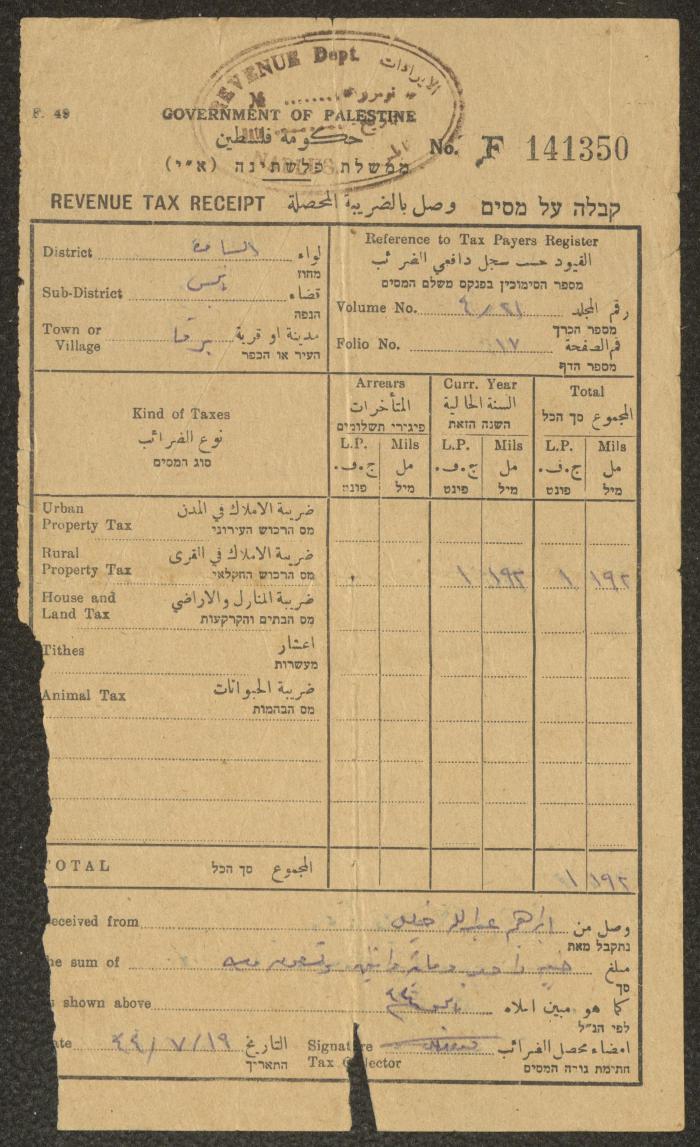 REVENUE Dept. الايرادات
نومرو
F. 49
GOVERNMENT OF PALESTINE
حكومة فلسطين
ממשלת פלשתינה (א״י)
No. F 141350
REVENUE TAX RECEIPT وصل بالضريبة المحصلة קבלה על מסים
District السامرة لواء
מחוז
Sub-District نابلس قضاء
הנפה
Town or Village برقا مدينة او قرية
העיר או הכפר
Reference to Tax Payers Register
القيود حسب سجل دافعي الضرائب
מספר הסימוכין בפנקס משלם המסים
Volume No. ٤/٢١ رقم المجلد
מספר הכרך
Folio No. ١٧ رقم الصفحة
מספר הדף
Kind of Taxes
نوع الضرائب
סוג המסים
Arrears
المتأخرات
פיגירי תשלומים
Curr. Year
السنة الحالية
השנה הזאת
Total
المجموع סך הכל
L.P. Mils L.P. Mils L.P. Mils
ج.ف. مل ج.ف. مل ج.ف. مل
פונט מיל פונט מיל פונט מיל
Urban Property Tax ضريبة الاملاك في المدن
מס הרכוש העירוני
Rural Property Tax ضريبة الاملاك في القرى
מס הרכוש החקלאי
١ ١٩٢ ١ ١٩٢
House and Land Tax ضريبة المنازل والاراضي
מס הבתים והקרקעות
Tithes اعشار
מעשרות
Animal Tax ضريبة الحيوانات
מס הבהמות
TOTAL المجموع סך הכל
١ ١٩٢
eceived from ابراهيم عبدالله خليل وصل من
נתקבל מאת
he sum of جنيه واحد ومائة واثنين وتسعون مل مبلغ
סך
shown above كما هو مبين اعلاه
לפי הנ״ל
ate ٤٤/٧/١٩ التاريخ
התאריך
Signature Tax Collector امضاء محصل الضرائب
חתימת גובה המסים